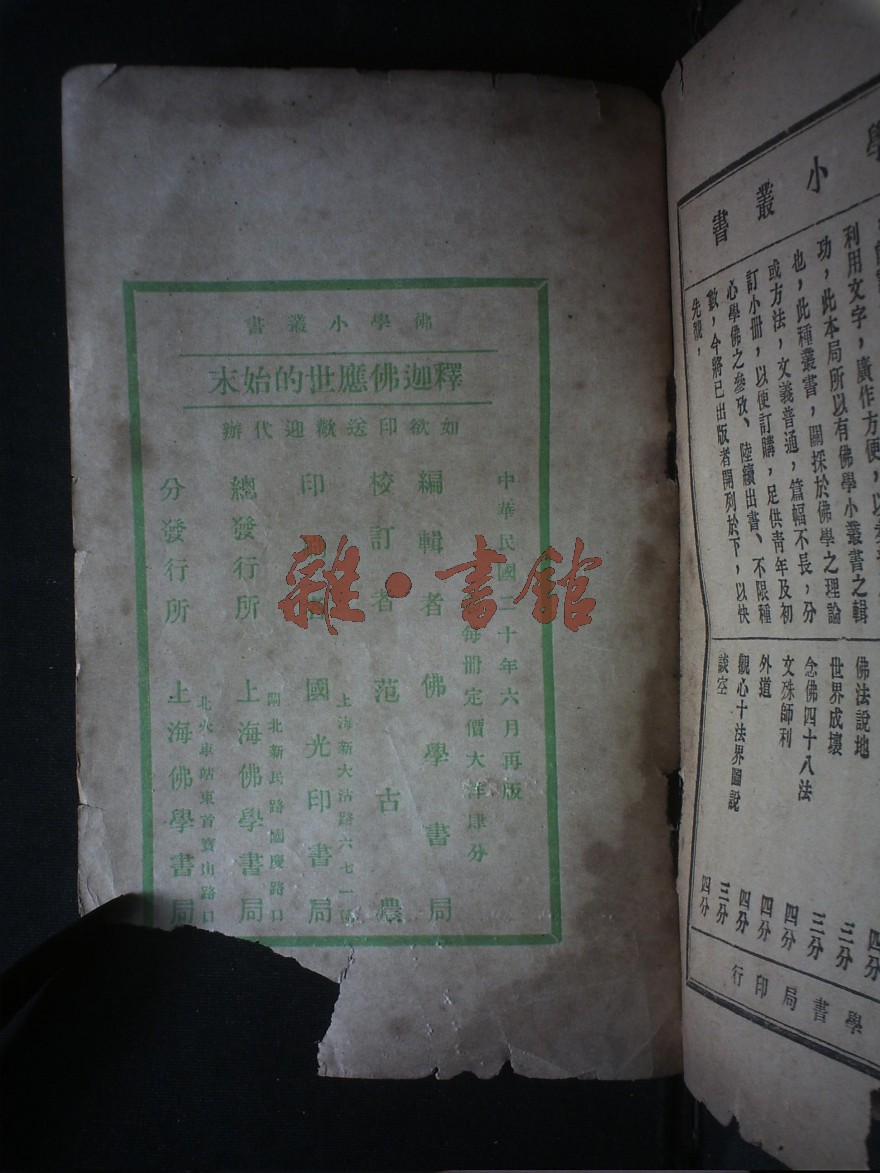 佛學小叢書
釋迦佛應世的始末
如欲印送歡迎代辦
中華民國二十年六月再版
每册定價大洋肆分
編輯者 佛學書局
校訂者 范古農
印 國光印書局
上海新大沽路六七一號
總發行所 上海佛學書局
閘北新民路國慶路口
分發行所 上海佛學書局
北火車站東首寶山路口
雜·書館
學小叢書
利用文字，廣作方便，以
功，此本局所以有佛學小叢書之輯
也，此種叢書，關採於佛學之理論
或方法，文義普通，篇幅不長，分
訂小册，以便訂購，足供青年及初
心學佛之參攷、陸續出書、不限種
數，今將已出版者開列於下，以快
先覩，
佛法說地 四分
世界成壞 三分
念佛四十八法 三分
文殊師利 四分
外道 四分
觀心十法界圖說 四分
談空 三分
四分
學書局印行